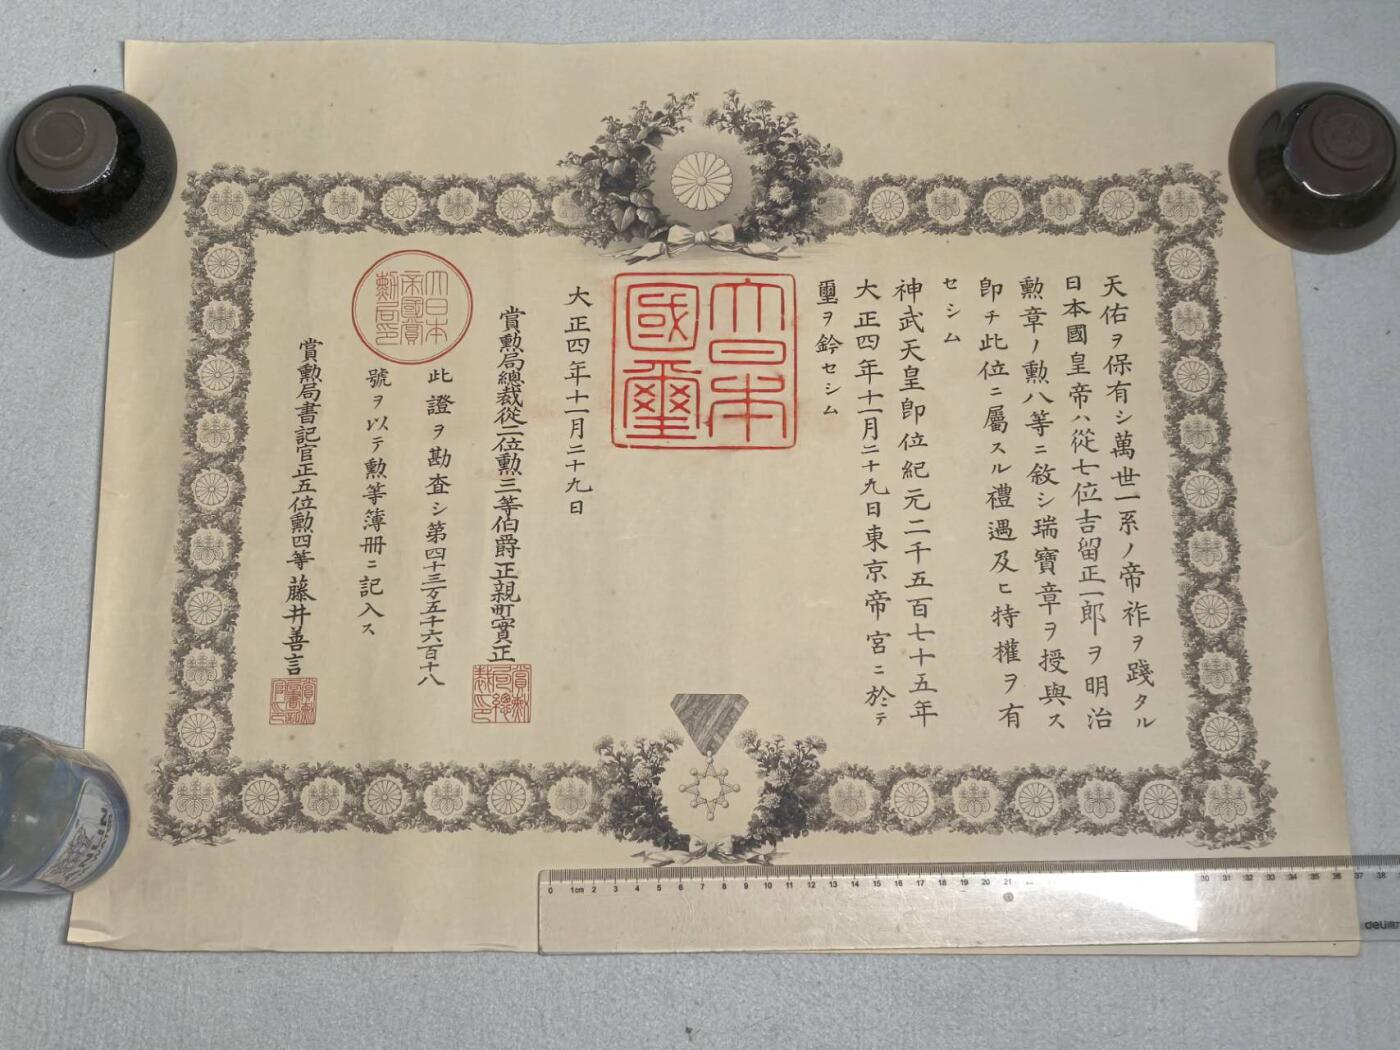 天佑ヲ保有シ萬世一系ノ帝祚ヲ踐タル
日本國皇帝ハ從七位吉留正一郎ヲ明治
勲章ノ勲八等ニ敘シ瑞寶章ヲ授與ス
卽チ此位ニ屬スル禮遇及ヒ特權ヲ有
セシム
神武天皇卽位紀元二千五百七十五年
大正四年十一月二十九日東京帝宮ニ於テ
璽ヲ鈐セシム
大日本
國璽
大正四年十一月二十九日
賞勲局總裁從二位勲三等伯爵正親町實正
賞勲
局總
裁印
此證ヲ勘査シ第四十三万五千六百十八
號ヲ以テ勲等簿册ニ記入ス
大日本
帝國賞
勲局印
賞勲局書記官正五位勲四等藤井善言
賞勲
局書記
官印
0 1cm 2 3 4 5 6 7 8 9 10 11 12 13 14 15 16 17 18 19 20 21 30 31 32 33 34 35 36 37 38
deli